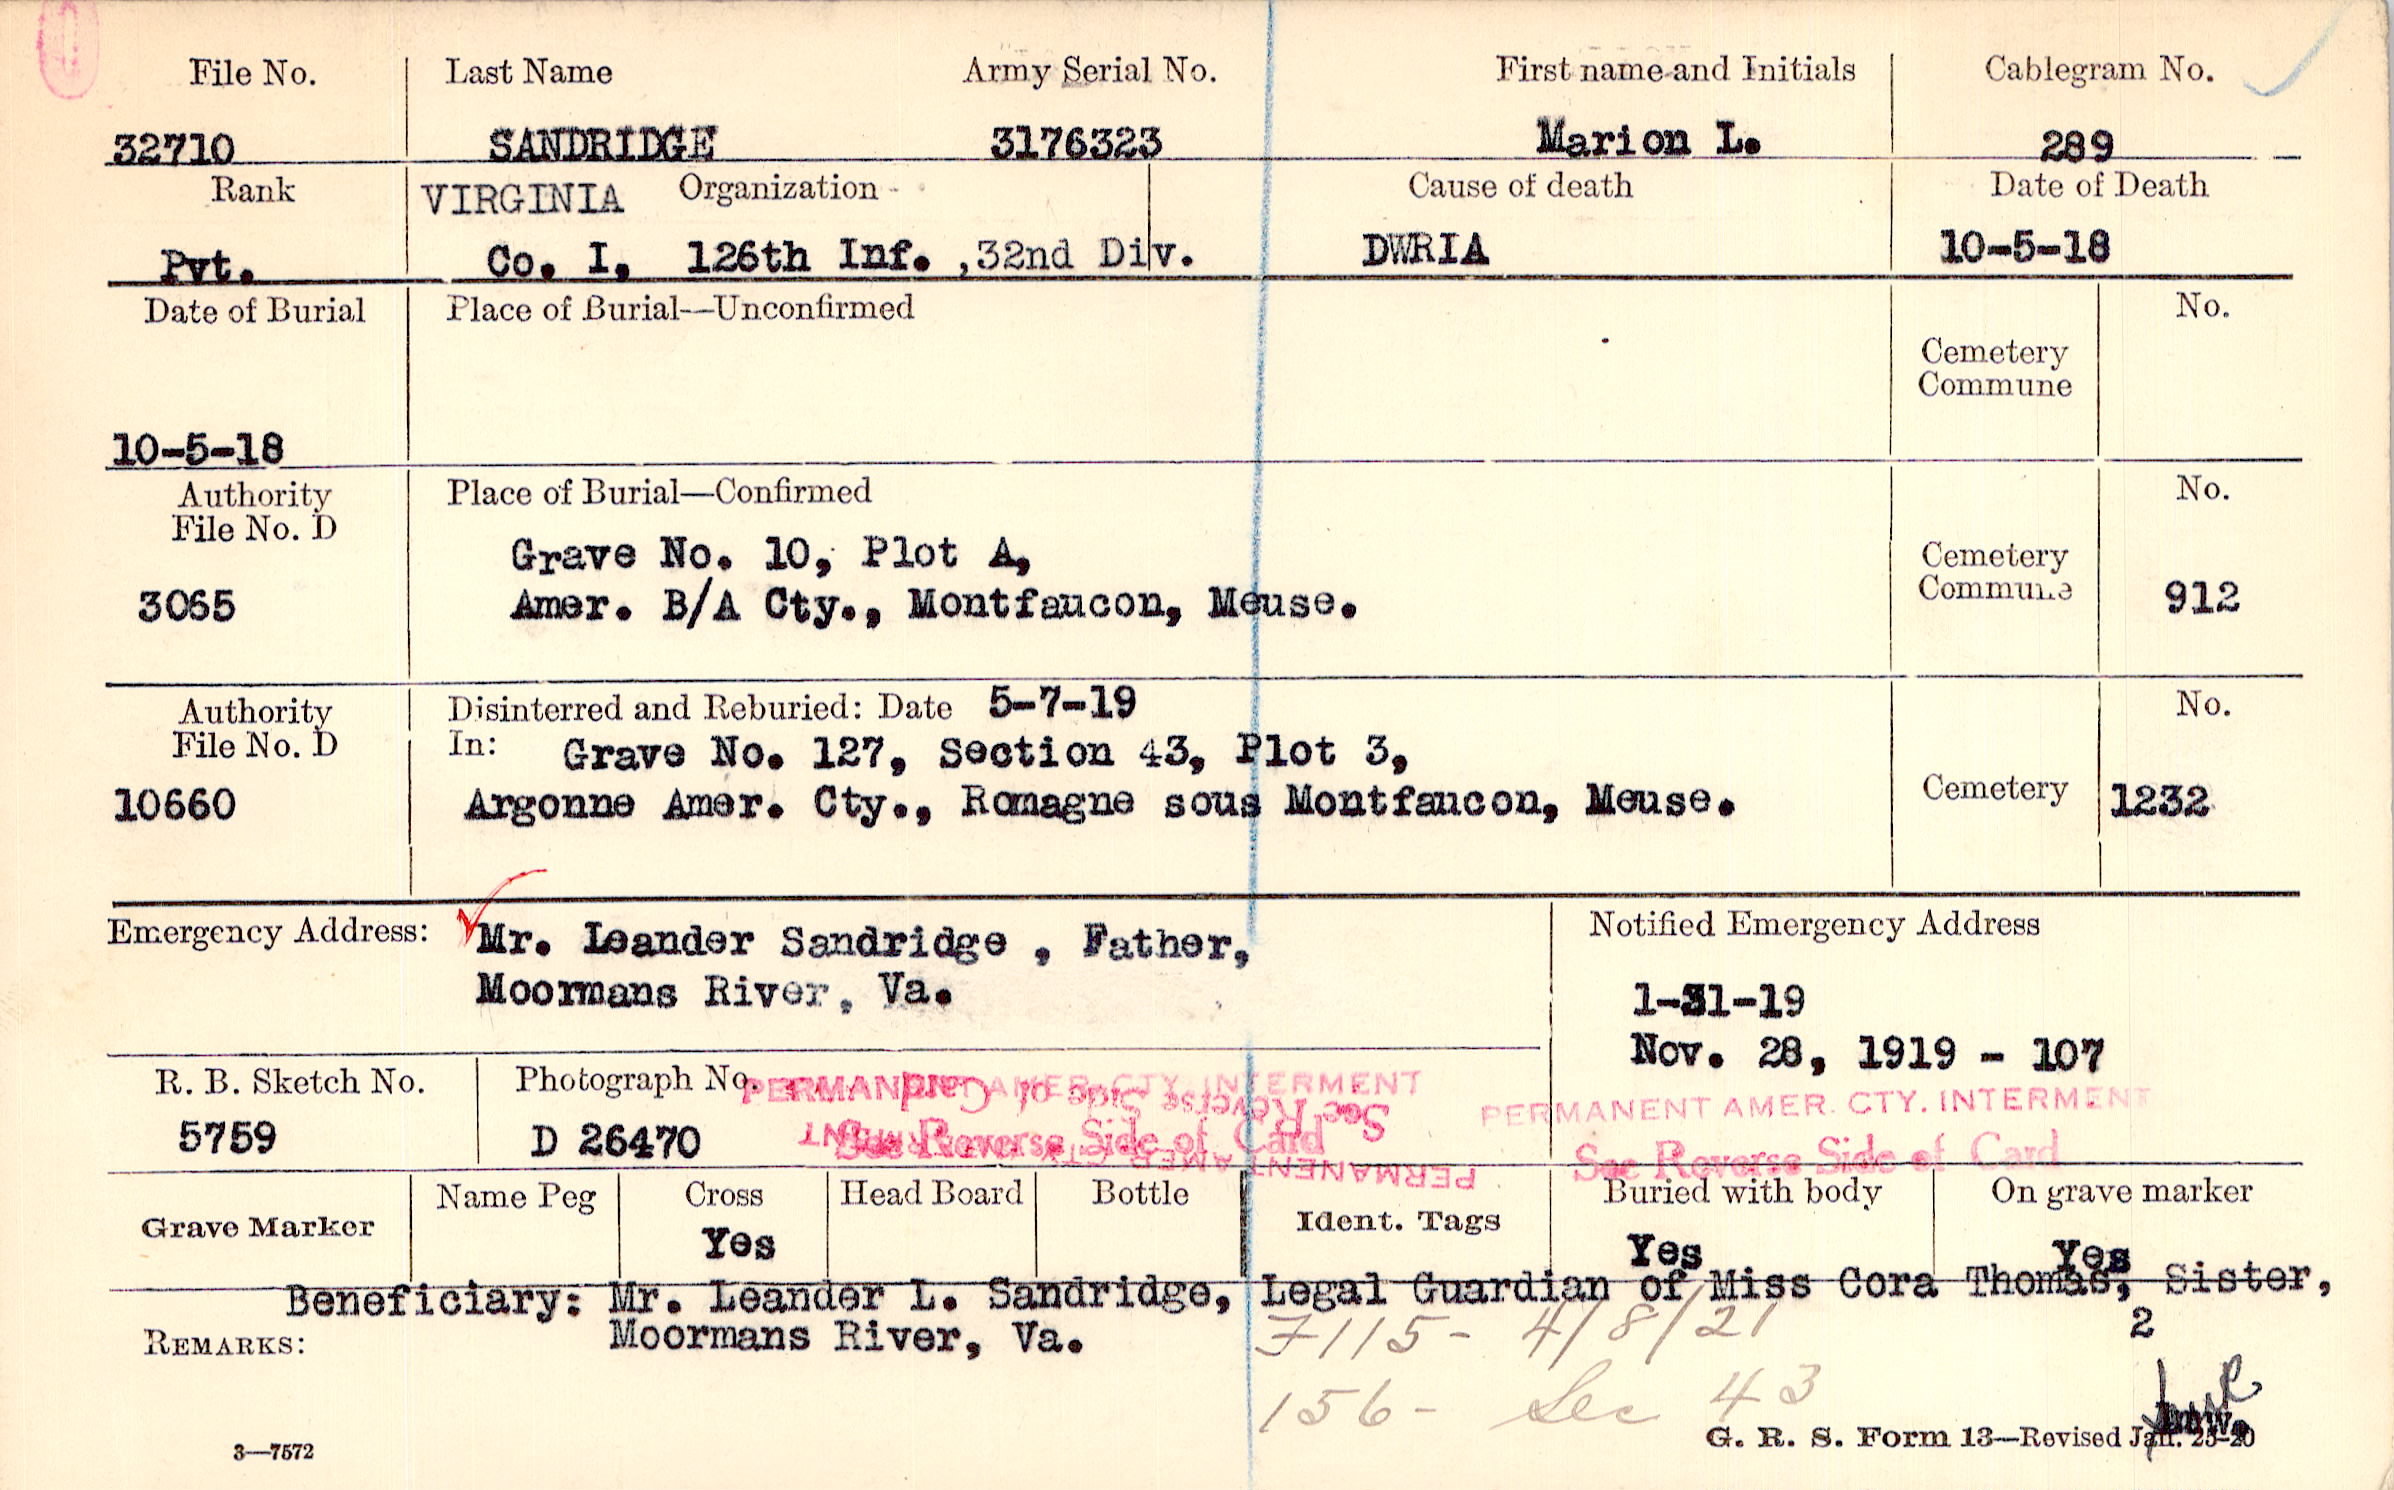 File No. Last Name Army Serial No. First name and Initials Cablegram No.
32710 SANDRIDGE 3176323 Marion L. 289
Rank VIRGINIA Organization Cause of death Date of Death
Pvt. Co. I, 126th Inf. ,32nd Div. DWRIA 10-5-18
Date of Burial Place of Burial—Unconfirmed No.
Cemetery
Commune
10-5-18
Authority Place of Burial—Confirmed No.
File No. D
Grave No. 10, Plot A, Cemetery
3065 Amer. B/A Cty., Montfaucon, Meuse. Commune 912
Authority Disinterred and Reburied: Date 5-7-19 No.
File No. D In: Grave No. 127, Section 43, Plot 3,
10660 Argonne Amer. Cty., Romagne sous Montfaucon, Meuse. Cemetery 1232
Emergency Address: Mr. Leander Sandridge , Father, Notified Emergency Address
Moormans River, Va. 1-31-19
Nov. 28, 1919 - 107
R. B. Sketch No. Photograph No. PERMANENT AMER. CTY. INTERMENT PERMANENT AMER. CTY. INTERMENT
See Reverse Side of Card
5759 D 26470 See Reverse Side of Card See Reverse Side of Card
PERMANENT AMER. CTY. INTERMENT
Grave Marker Name Peg Cross Head Board Bottle Ident. Tags Buried with body On grave marker
Yes Yes Yes
Beneficiary: Mr. Leander L. Sandridge, Legal Guardian of Miss Cora Thomas, Sister,
REMARKS: Moormans River, Va. 7115- 4/8/21 2
156- Sec 43
3—7572 G. R. S. Form 13—Revised Jan. 25-20